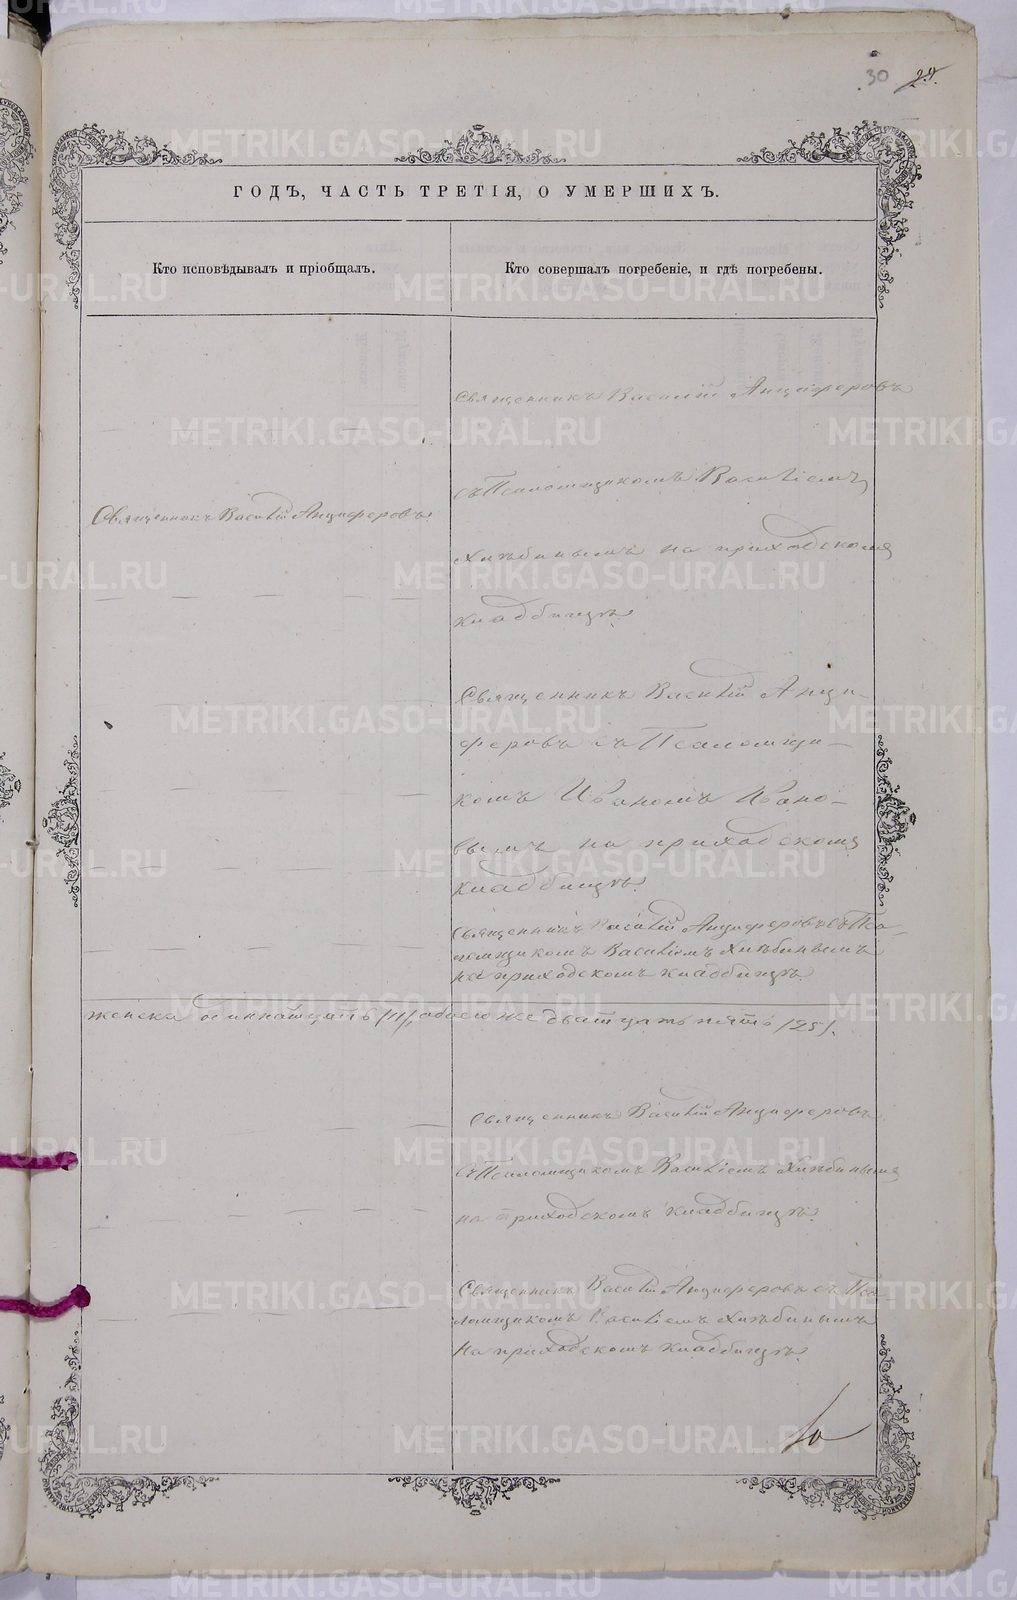 30 29.
ГОДЪ, ЧАСТЬ ТРЕТІЯ, О УМЕРШИХЪ.
Кто исповѣдывалъ и пріобщалъ.
Кто совершалъ погребеніе, и гдѣ погребены.
Священникъ Василій Анциферовъ
съ Псаломщикомъ Василіемъ
Хлѣбинымъ на приходскомъ
кладбищѣ.
Священникъ Василій Анциферовъ.
Священникъ Василій Анци-
феровъ съ Псаломщи-
комъ Иваномъ Ивано-
вымъ на приходскомъ
кладбищѣ.
Священникъ Василій Анциферовъ съ Пса-
ломщикомъ Василіемъ Хлѣбинымъ
на приходскомъ кладбищѣ.
женска одиннатцать /11/, обоего же дватцать пять /25/.
Священникъ Василій Анциферовъ
съ Псаломщикомъ Василіемъ Хлѣбинымъ
на приходскомъ кладбищѣ.
Священникъ Василій Анциферовъ съ Пса-
ломщикомъ Василіемъ Хлѣбинымъ
на приходскомъ кладбищѣ.
METRIKI.GASO-URAL.RU